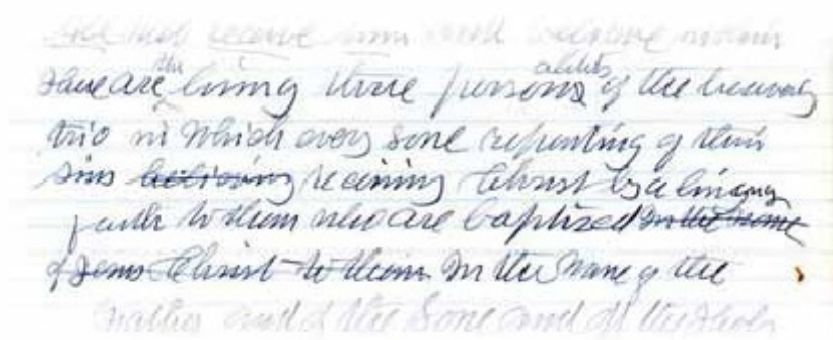 receive him
There are the living three personsalities of the heavenly
trio in which every soul repenting of their
sins believing receiving Christ by a living
faith to them who are baptized in the name
of Jesus Christ to them in the name of the
Father and of the Sone and of the Holy